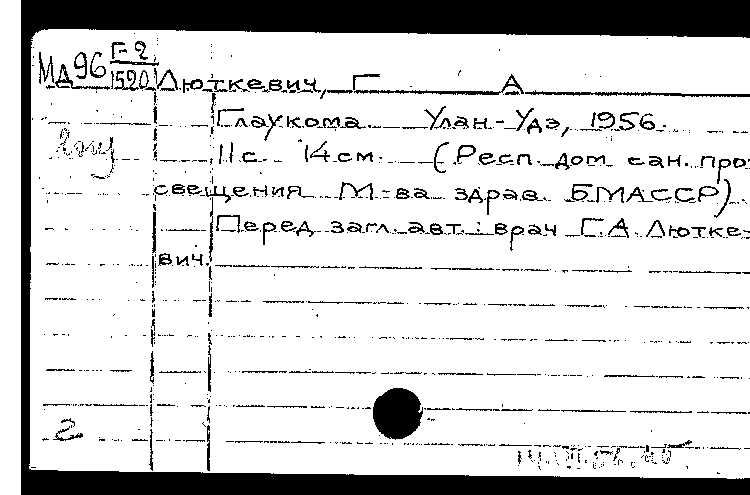 Мд96 Г-2
1520 Люткевич, Г А
Глаукома Улан-Удэ, 1956.
11 с. 14 см. (Респ. дом сан. про-
свещения М-ва здрав. БМАССР).
Перед загл. авт.: врач Г.А. Лютке-
вич.
2